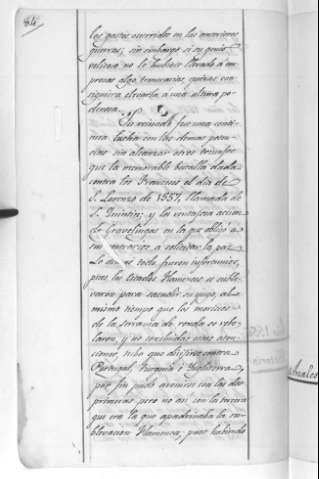 84
los gastos ocurridos en las anteriores
guerras; sin embargo si su genio
belicoso no le hubiese llevado á em-
presas algo temerarias, nunca con-
siguiera elevarla a una altura po-
derosa.
Su reinado fue una conti-
nua lucha con las demas poten-
cias sin alcanzar otros triunfos
que la memorable batalla dada
contra los Franceses el dia de
S. Lorenzo de 1557, llamada de
S. Quintin; y la ventajosa accion
de Gravelingas en la que obligó a
su contrario a solicitar la paz.
Lo demas todo fueron infortunios,
pues los Estados Flamencos se suble-
varon para sacudir su yugo, al
mismo tiempo que los moriscos
de la serrania de ronda se rebe-
laron, y no concluidas estas aten-
ciones, hubo que dirigirse contra
Portugal, Francia é Inglaterra,
por fin pudo avenirse con las dos
primeras, pero no asi con la tercera
que era la que apadrinaba la su-
blevacion Flamenca, pues habiendo